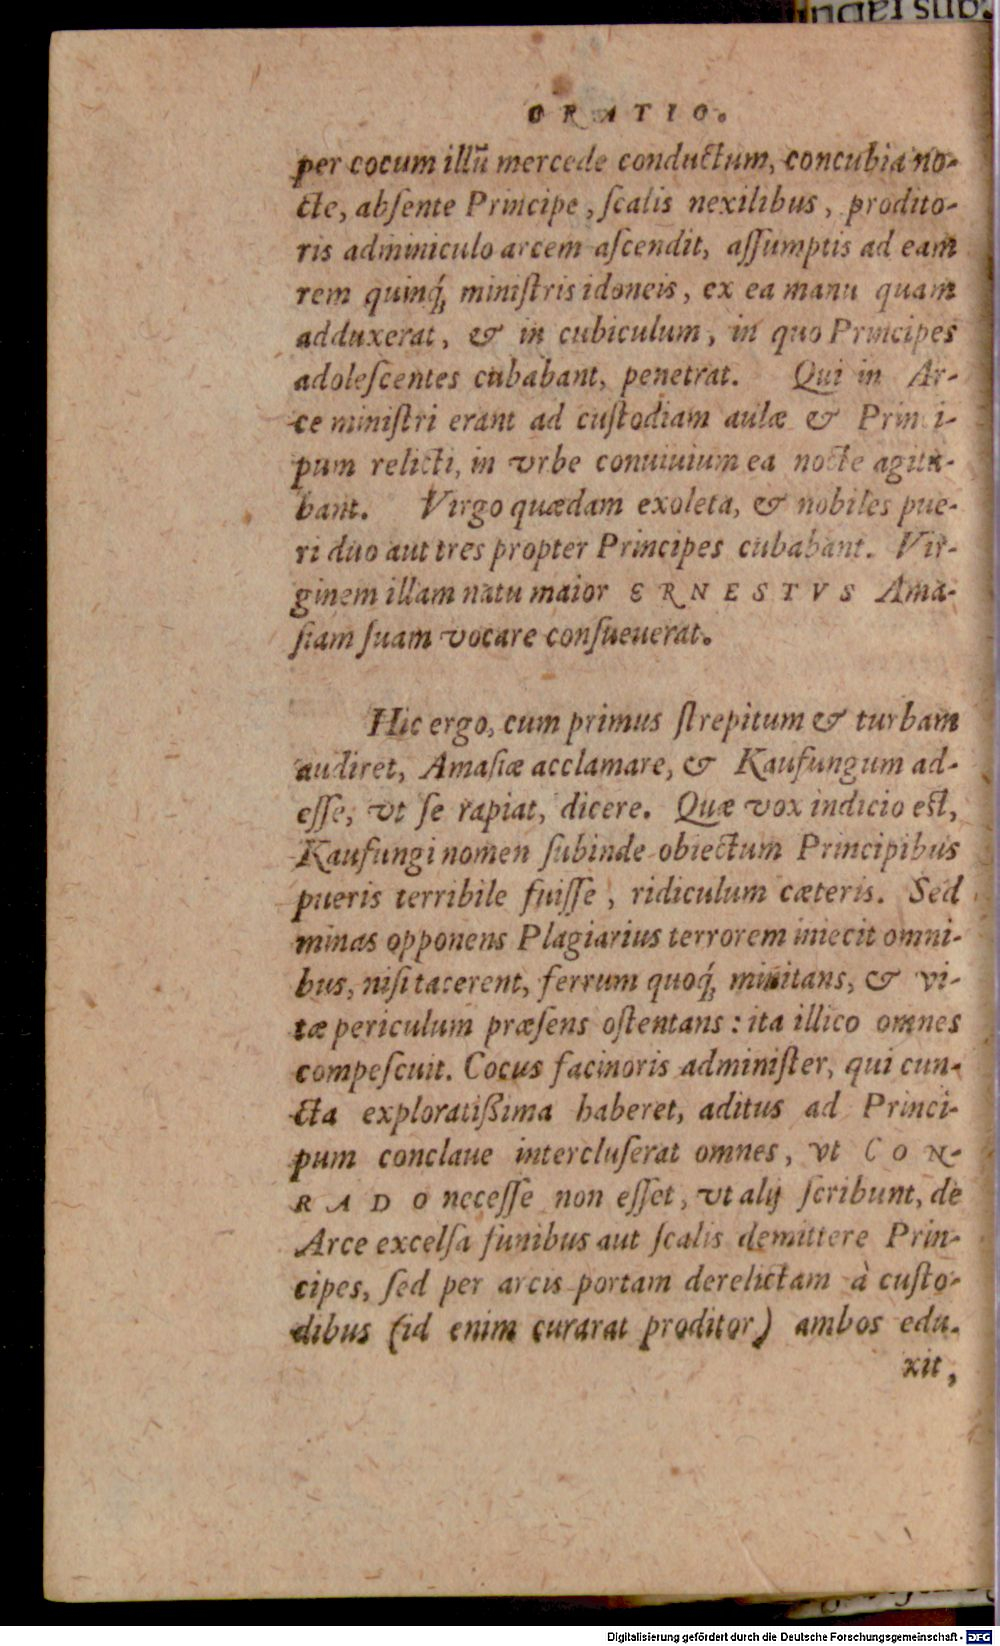 ORATIO.
per cocum illū mercede conductum, concubia no-
cte, abſente Principe, ſcalis nexilibus, prodito-
ris adminiculo arcem aſcendit, aſſumptis ad eam
rem quinq́; miniſtris idoneis, ex ea manu quam
adduxerat, & in cubiculum, in quo Principes
adoleſcentes cubabant, penetrat. Qui in Ar-
ce miniſtri erant ad cuſtodiam aulæ & Princi-
pum relicti, in vrbe conuiuium ea nocte agita-
bant. Virgo quædam exoleta, & nobiles pue-
ri duo aut tres propter Principes cubabant. Vir-
ginem illam natu maior ERNESTVS Ama-
ſiam ſuam vocare conſueuerat.
Hic ergo, cum primus ſtrepitum & turbam
audiret, Amaſiæ acclamare, & Kaufungum ad-
eſſe, vt ſe rapiat, dicere. Quæ vox indicio eſt,
Kaufungi nomen ſubinde obiectum Principibus
pueris terribile fuiſſe, ridiculum cæteris. Sed
minas opponens Plagiarius terrorem iniecit omni-
bus, niſi tacerent, ferrum quoq́; minitans, & vi-
tæ periculum præſens oſtentans: ita illico omnes
compeſcuit. Cocus facinoris adminiſter, qui cun-
cta exploratiſſima haberet, aditus ad Princi-
pum conclaue intercluſerat omnes, vt CON-
RADO neceſſe non eſſet, vt alij ſcribunt, de
Arce excelſa funibus aut ſcalis demittere Prin-
cipes, ſed per arcis portam derelictam à cuſto-
dibus (id enim curarat proditor) ambos edu-
xit,
Digitalisierung gefördert durch die Deutsche Forschungsgemeinschaft - DFG